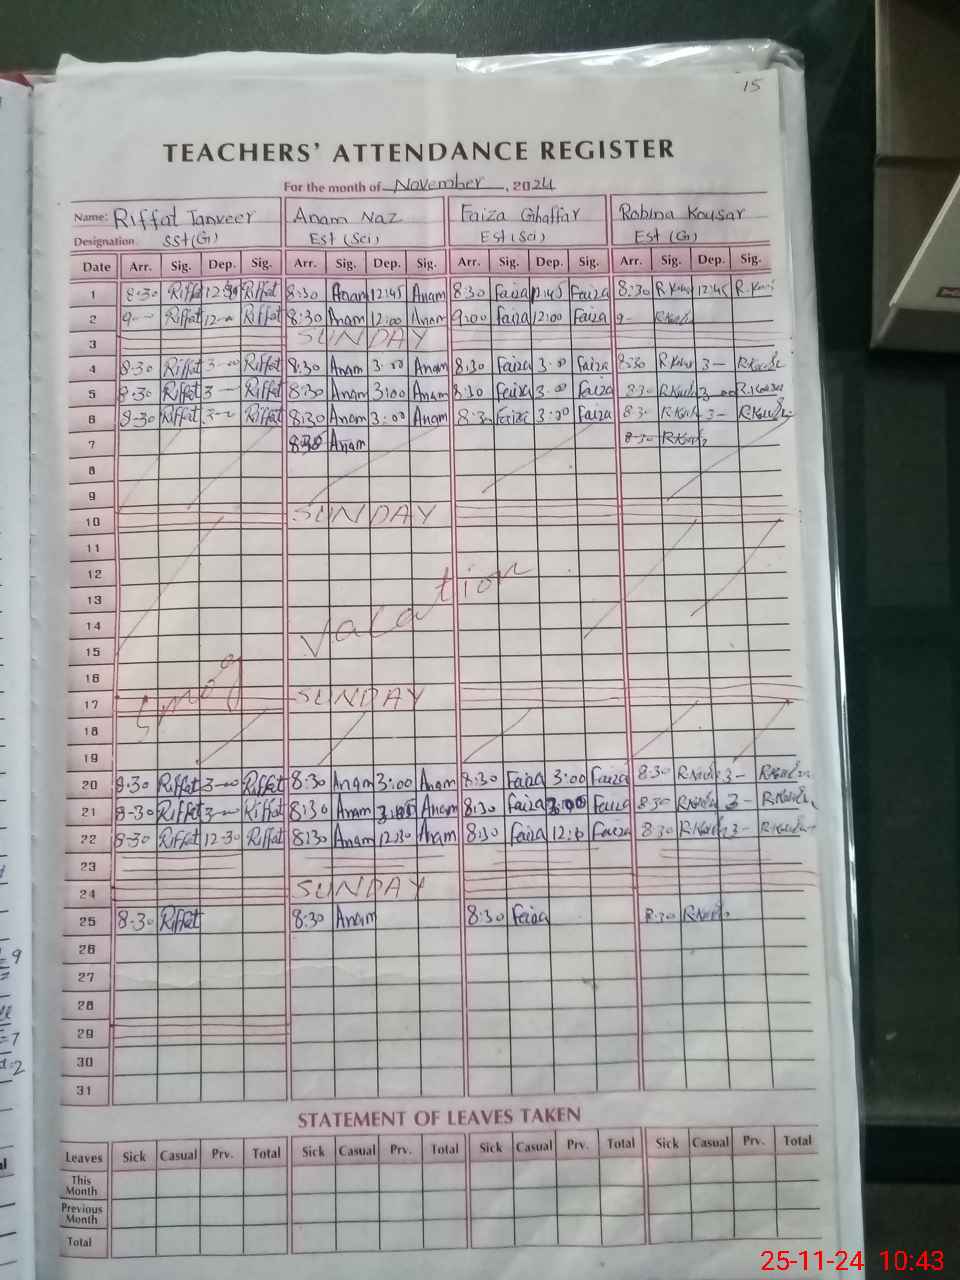 15
TEACHERS' ATTENDANCE REGISTER
For the month of November, 2024
Name: Riffat Tanveer Anam Naz Faiza Ghaffar Robina Kousar
Designation. SSt(G) Est (Sci) Est(Sci) Est (G)
Date Arr. Sig. Dep. Sig. Arr. Sig. Dep. Sig. Arr. Sig. Dep. Sig. Arr. Sig. Dep. Sig.
1 8-30 Riffat Riffat 8:30 Anam 12:45 Anam 8:30 Faiza 12:45 Faiza 8:30 12:45
2 9-- Riffat Riffat 8:30 Anam 12:00 Anam 9:00 Faiza 12:00 Faiza 9-
3 SUNDAY
4 8-30 Riffat 3-00 Riffat 8:30 Anam 3:00 Anam 8:30 Faiza 3:00 Faiza 8:30 3-
5 8-30 Riffat 3- Riffat 8:30 Anam 3:00 Anam 8:30 Faiza 3:00 Faiza 8:30
6 8-30 Riffat Riffat 8:30 Anam 3:00 Anam 8:30 Faiza 3:00 Faiza 8:30 3-
7 8:30 Anam 8:30
8
9
10 SUNDAY
11
12
13
14
15
16
smog vacation
17 SUNDAY
18
19
20 8-30 Riffat 3-00 Riffat 8:30 Anam 3:00 Anam 8:30 Faiza 3:00 Faiza 8:30 3-
21 8-30 Riffat 3-00 Riffat 8:30 Anam Anam 8:30 Faiza 3:00 Faiza 8:30 3-
22 8-30 Riffat 12-30 Riffat 8:30 Anam 12:30 Anam 8:30 Faiza Faiza 8:30 3-
23
24 SUNDAY
25 8-30 Riffat 8:30 Anam 8:30 Faiza 8:30
26
27
28
29
30
31
STATEMENT OF LEAVES TAKEN
Leaves Sick Casual Prv. Total Sick Casual Prv. Total Sick Casual Prv. Total Sick Casual Prv. Total
This
Month
Previous
Month
Total
25-11-24 10:43